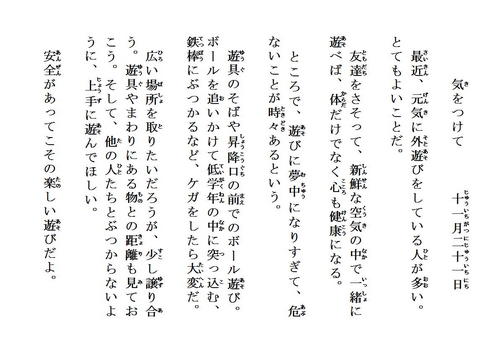 気をつけて　十一月二十一日
最近、元気に外遊びをしている人が多い。
とてもよいことだ。
友達をさそって、新鮮な空気の中で一緒に
遊べば、体だけでなく心も健康になる。
ところで、遊びに夢中になりすぎて、危
ないことが時々あるという。
遊具のそばや昇降口の前でのボール遊び。
ボールを追いかけて低学年の中に突っ込む、
鉄棒にぶつかるなど、ケガをしたら大変だ。
広い場所を取りたいだろうが、少し譲り合
う。遊具やまわりにある物との距離も見てお
こう。そして、他の人たちとぶつからないよ
うに、上手に遊んでほしい。
安全があってこその楽しい遊びだよ。